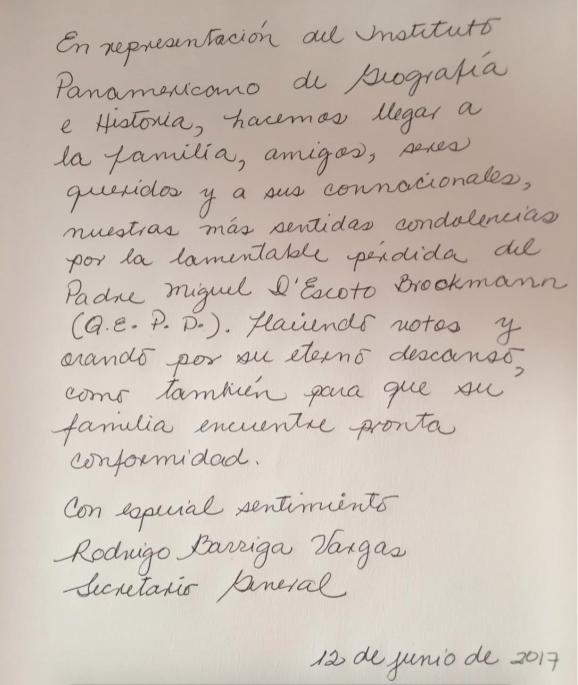 En representación del Instituto
Panamericano de Geografía
e Historia, hacemos llegar a
la familia, amigos, seres
queridos y a sus connacionales,
nuestras más sentidas condolencias
por la lamentable pérdida del
Padre Miguel D'Escoto Brockmann
(Q.E.P.D.). Haciendo votos y
orando por su eterno descanso,
como también para que su
familia encuentre pronta
conformidad.
Con especial sentimiento
Rodrigo Barriga Vargas
Secretario General
12 de junio de 2017